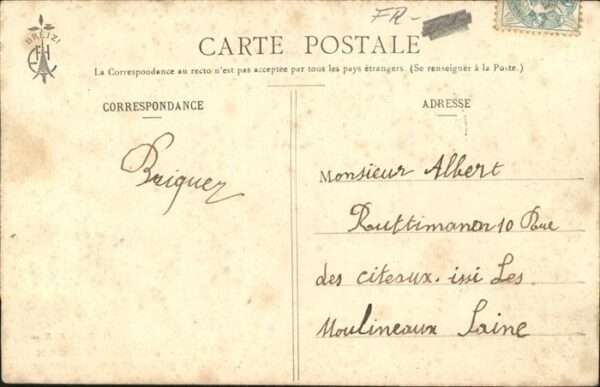 BREIZ!
FR-
CARTE POSTALE
La Correspondance au recto n'est pas acceptée par tous les pays étrangers. (Se renseigner à la Poste.)
CORRESPONDANCE
Briquez
ADRESSE
Monsieur Albert
Ruttimann 10 Rue
des citeaux. issi Les
Moulineaux Saine